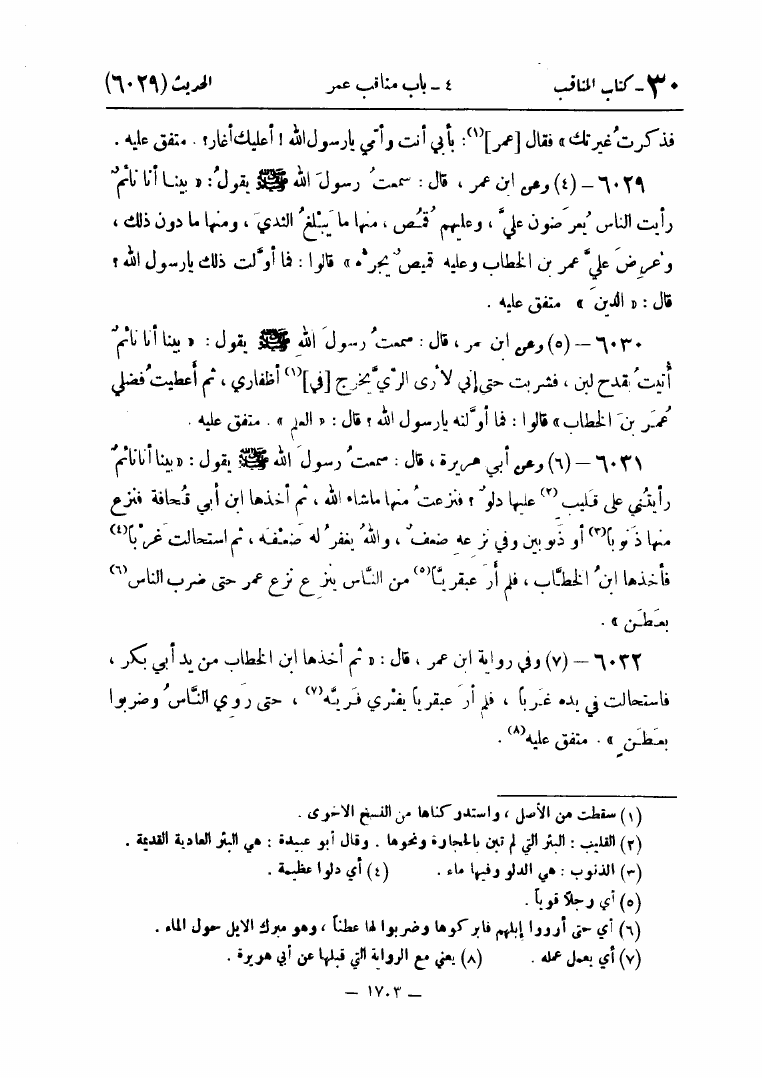 ٣٠ - كتاب المناقب ٤ - باب مناقب عمر الحديث (٦٠٢٩)
فذكرتُ غيرتك» فقال [عمر](١): بأبي أنت وأمي يارسول الله! أعليك أغار؟. متفق عليه.
٦٠٢٩ - (٤) وعن ابن عمر، قال: سمعتُ رسولَ الله ﷺ يقولُ: «بينا أنا نائمٌ
رأيت الناس يُعرَضون عليَّ، وعليهم قُمُص، منها ما يَبْلغُ الثديَ، ومنها ما دون ذلك،
وعُرِضَ عليَّ عمر بن الخطاب وعليه قميصٌ يجرُّه» قالوا: فما أوَّلت ذلك يارسول الله؟
قال: «الدينَ» متفق عليه.
٦٠٣٠ - (٥) وعن ابن عمر، قال: سمعتُ رسولَ اللهِ ﷺ يقول: «بينا أنا نائمٌ
أُتيتُ بقدح لبن، فشربت حتى إني لأرى الرِّيَّ يخرج [في](١) أظفاري، ثم أَعطيتُ فضلي
عُمَر بنَ الخطاب» قالوا: فما أوَّلته يارسول الله؟ قال: «العلم». متفق عليه.
٦٠٣١ - (٦) وعن أبي هريرة، قال: سمعتُ رسولَ الله ﷺ يقول: «بينا أنا نائمٌ
رأيتُني على قَليب(٢) عليها دلوٌ؟ فنزعتُ منها ماشاء الله، ثم أخذها ابن أبي قُحافة فنزع
منها ذَنوباً(٣) أو ذَنوبين وفي نزعهِ ضعفٌ، واللهُ يغفرُ له ضَعْفَه، ثم استحالت غَرْباً(٤)
فأخذها ابنُ الخطَّاب، فلم أرَ عبقريَّاً(٥) من النَّاس ينزع نزع عمر حتى ضرب الناس(٦)
بعَطَن».
٦٠٣٢ - (٧) وفي رواية ابن عمر، قال: «ثم أخذها ابن الخطاب من يد أبي بكر،
فاستحالت في يده غَرباً، فلم أرَ عبقرياً يفْري فَريَّه(٧)، حتى رَوِي النَّاسُ وضربوا
بعَطَنٍ». متفق عليه(٨).
(١) سقطت من الأصل، واستدركناها من النسخ الاخرى.
(٢) القليب: البئر التي لم تبن بالحجارة ونحوها. وقال أبو عبيدة: هي البئر العادية القديمة.
(٣) الذنوب: هي الدلو وفيها ماء. (٤) أي دلوا عظيمة.
(٥) أي رجلاً قوياً.
(٦) أي حتى أرووا إبلهم فابركوها وضربوا لها عطناً، وهو مبرك الابل حول الماء.
(٧) أي يعمل عمله. (٨) يعني مع الرواية التي قبلها عن أبي هريرة.
- ١٧٠٣ -